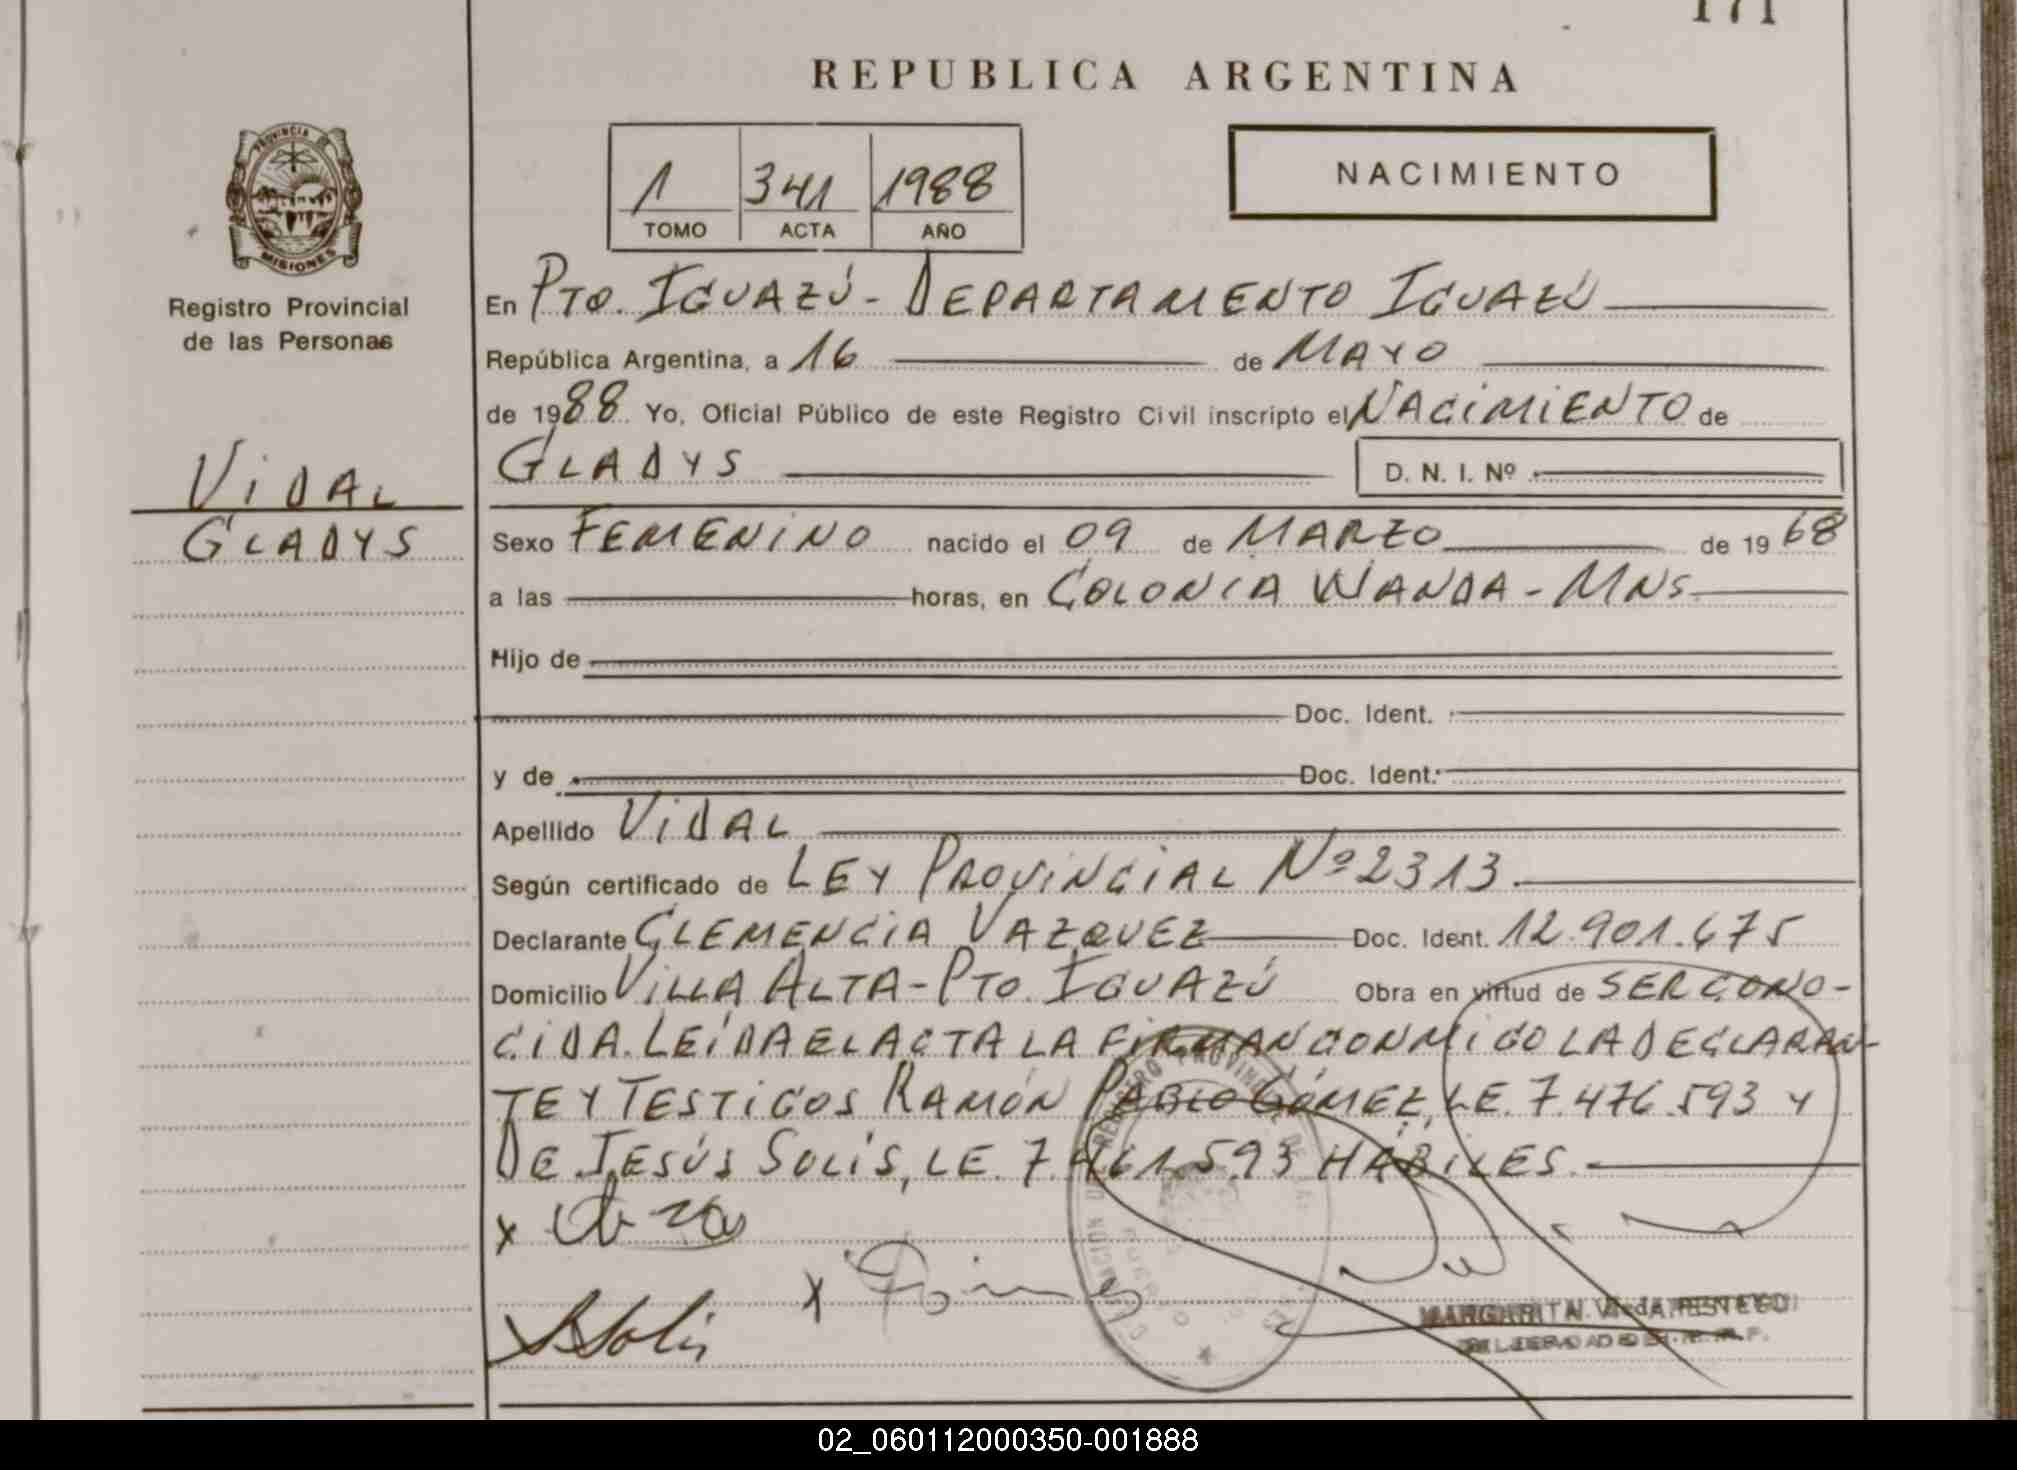 171
REPUBLICA ARGENTINA
PROVINCIA DE
MISIONES
Registro Provincial
de las Personas
1 341 1988
TOMO ACTA AÑO
NACIMIENTO
En PTO. IGUAZÚ - DEPARTAMENTO IGUAZÚ
República Argentina, a 16 de MAYO
de 1988 Yo, Oficial Público de este Registro Civil inscripto el NACIMIENTO de
GLADYS D. N. I. Nº
VIDAL
GLADYS
Sexo FEMENINO nacido el 09 de MARZO de 1968
a las horas, en COLONIA WANDA - MNS
Hijo de
Doc. Ident.
y de Doc. Ident.
Apellido VIDAL
Según certificado de LEY PROVINCIAL Nº 2313
Declarante CLEMENCIA VAZQUEZ Doc. Ident. 12.901.675
Domicilio VILLA ALTA - PTO. IGUAZÚ Obra en virtud de SER CONO-
CIDA. LEÍDA EL ACTA LA FIRMAN CONMIGO LA DECLARAN-
TE Y TESTIGOS RAMÓN PABLO GÓMEZ, LE. 7.476.593 Y
DE JESÚS SOLÍS, LE. 7.461.593 HÁBILES.
x
x
02_060112000350-001888